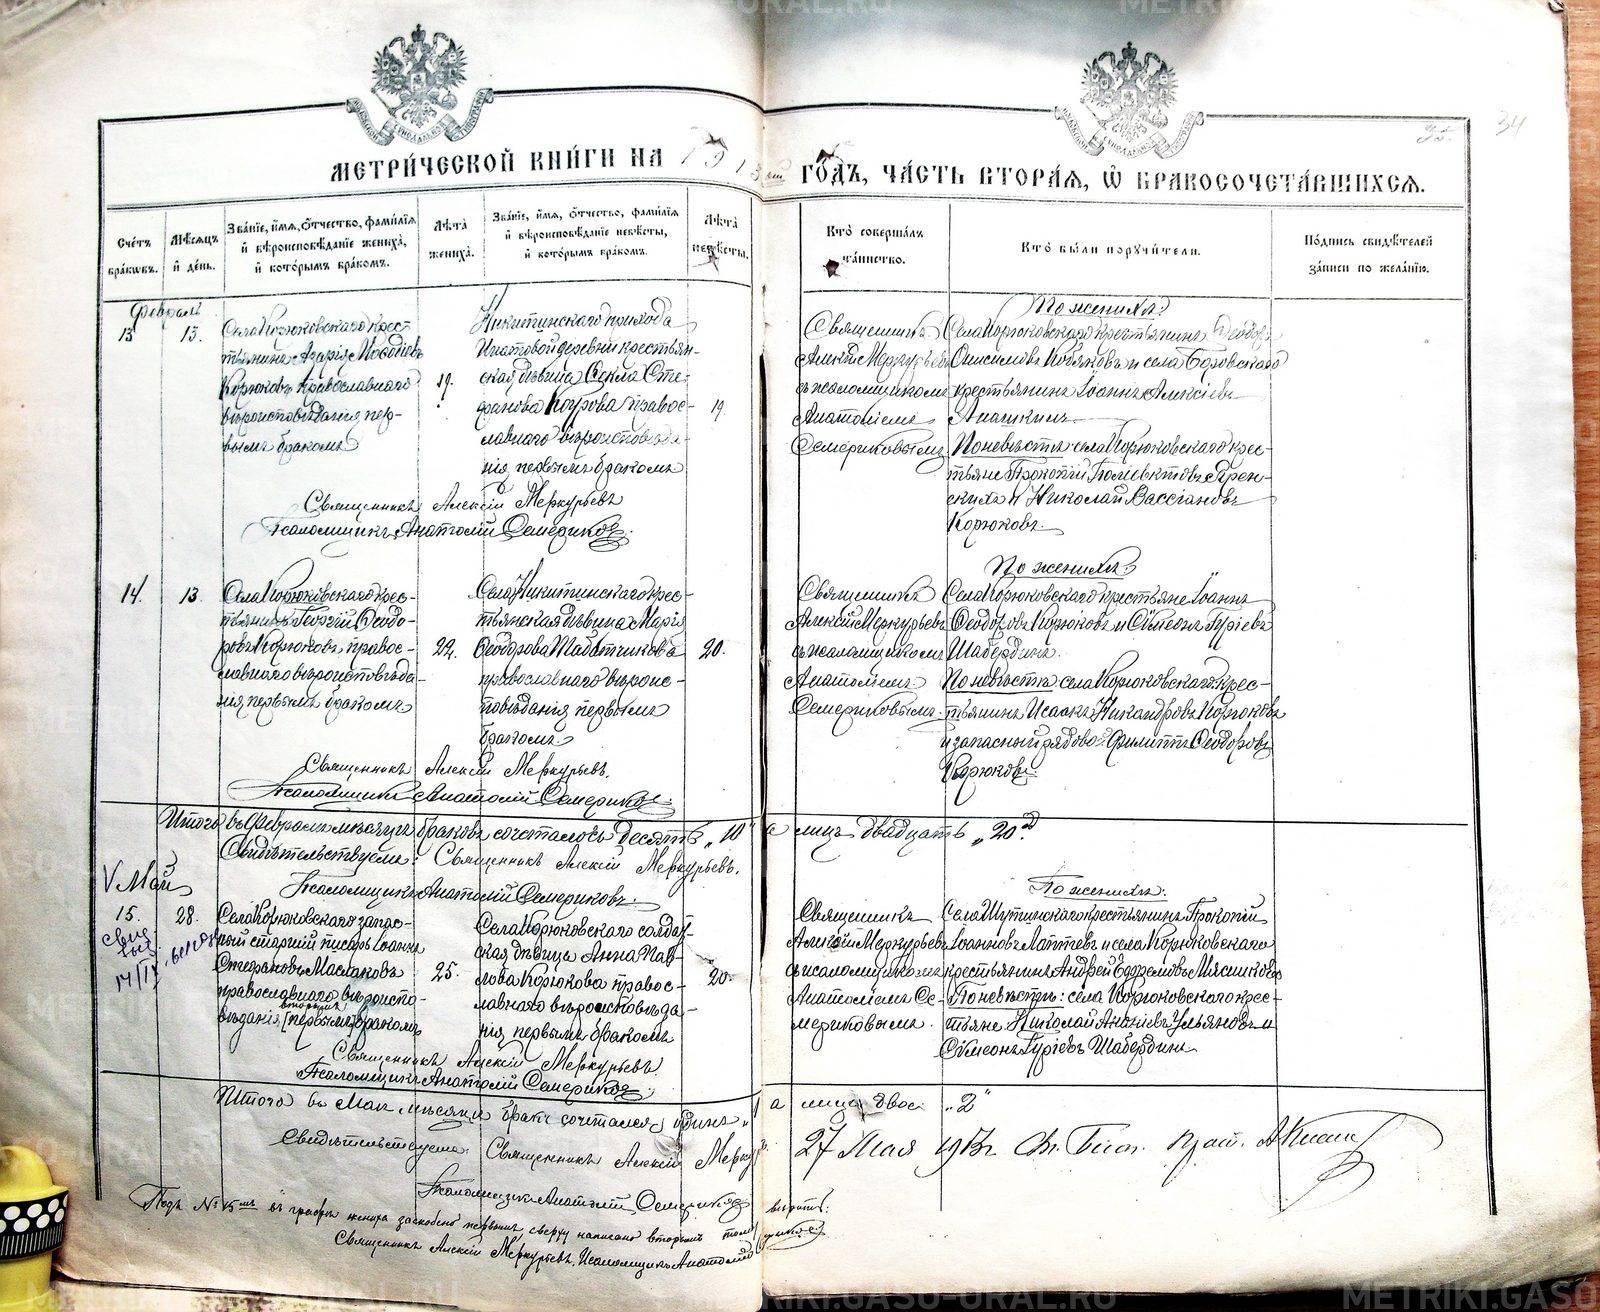 МЕТРИЧЕСКОЙ КНИГИ НА 1913 ый ГОДЪ, ЧАСТЬ ВТОРАЯ, Ѡ БРАКОСОЧЕТАВШИХСЯ.
34
Счетъ браковъ.
Мѣсяцъ и день.
Званіе, имя, отчество, фамилія и вѣроисповѣданіе жениха, и которымъ бракомъ.
Лѣта жениха.
Званіе, имя, отчество, фамилія и вѣроисповѣданіе невѣсты, и которымъ бракомъ.
Лѣта невѣсты.
Кто совершалъ таинство.
Кто были поручители.
Подпись свидѣтелей записи по желанію.
Февраль
13
13.
Села Корюковскаго крест
тьянинъ Азарія
Корюковъ православнаго
вѣроисповѣданія пер-
вымъ бракомъ
19.
Никитинскаго прихода
Ипатовой деревни крестьян-
ская дѣвица Ѳекла Сте-
фанова правос-
лавнаго вѣроисповѣда-
нія первымъ бракомъ
19.
Священникъ
Алексій Меркурьевъ
съ псаломщикомъ
Анатоліемъ
Семериковымъ
По женихѣ:
Села Корюковскаго крестьянинъ Ѳеодоръ
Онисимовъ и села Боровскаго
крестьянинъ Іоаннъ Алексіевъ
Ананкинъ
По невѣстѣ села Корюковскаго крес-
тьяне Прокопій
и Николай Вассіановъ
Корюковъ.
Священникъ Алексій Меркурьевъ
Псаломщикъ Анатолій Семериковъ.
14.
13.
Села Корюковскаго крес-
тьянинъ Георгій Ѳеодо-
ровъ Корюковъ правос-
лавнаго вѣроисповѣда-
нія первымъ бракомъ
22.
Села Никитинскаго крес-
тьянская дѣвица Марія
Ѳеодорова Табатчикова
православнаго вѣроис-
повѣданія первымъ
бракомъ.
20.
Священникъ
Алексій Меркурьевъ
съ псаломщикомъ
Анатоліемъ
Семериковымъ.
По женихѣ:
Села Корюковскаго крестьяне Іоаннъ
Ѳеодоровъ Корюковъ и Сѵмеонъ Гуріевъ
Шабердинъ.
По невѣстѣ села Корюковскаго крес-
тьянинъ Исаакъ Никандровъ Корюковъ
и запасный рядовой Филиппъ Ѳеодоровъ
Корюковъ.
Священникъ Алексій Меркурьевъ.
Псаломщикъ Анатолій Семериковъ.
Итого въ Февралѣ мѣсяцѣ браковъ сочеталось десять „10“ а лицъ двадцать „20“
Свидѣтельствуемъ: Священникъ Алексій Меркурьевъ.
Псаломщикъ Анатолій Семериковъ.
V Май
15.
28.
Села Корюковскаго запас-
ный старшій писарь Іоаннъ
Стефановъ Маслаковъ
православнаго вѣроиспо-
вторымъ
вѣданія [первымъ] бракомъ
25.
Села Корюковскаго солдат-
ская дѣвица Анна Пав-
лова Корюкова правос-
лавнаго вѣроисповѣда-
нія первымъ бракомъ
20.
Священникъ
Алексій Меркурьевъ
съ псаломщикомъ
Анатоліемъ Се-
мериковымъ.
По женихѣ:
Села Шутинскаго крестьянинъ Прокопій
Іоанновъ Лаптевъ и села Корюковскаго
крестьянинъ Андрей Мясниковъ
По невѣстѣ: села Корюковскаго крес-
тьяне Николай Ананіевъ Ульяновъ и
Сѵмеонъ Гуріевъ Шабердинъ
Священникъ Алексій Меркурьевъ
Псаломщикъ Анатолій Семериковъ.
Итого въ Маѣ мѣсяцѣ бракъ сочетался одинъ „1 а лица двое „2“
Свидѣтельствуемъ: Священникъ Алексій Меркурьевъ.
27 Мая 1913 г.
Псаломщикъ Анатолій Семериковъ
Подъ № 15 мъ въ графѣ жениха заскоблено первымъ, сверху написано вторымъ тому вѣрить:
Священникъ Алексій Меркурьевъ. Псаломщикъ Анатолій